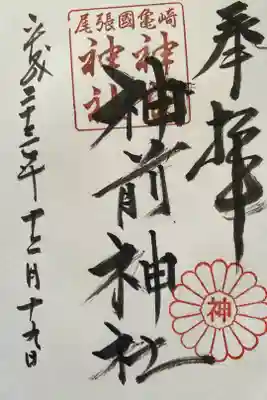 奉拝
尾張國亀崎
神前
神社
神前神社
神
平成二十三年十二月十九日